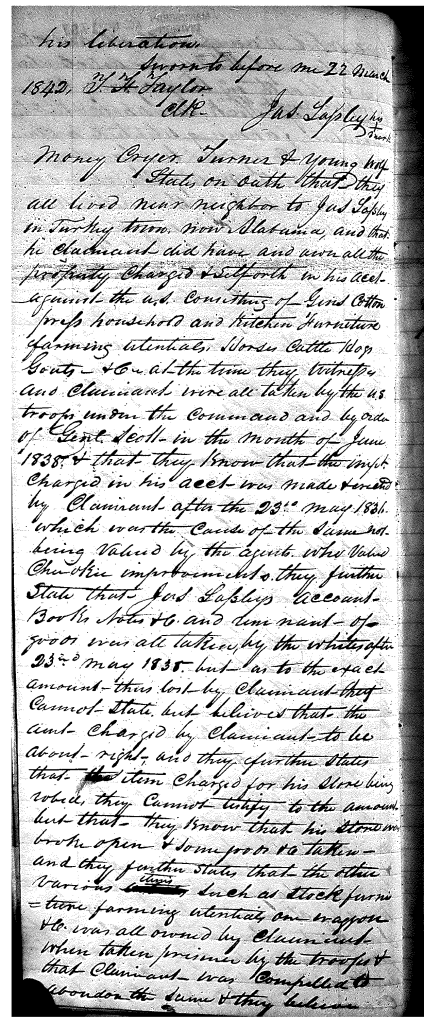 his liberation.
Sworn to before me 22 March
1842. T. H. Taylor
Clk. Jas Laſsley his
mark
Money Cryer, Turner & Young Wolf
States on oath that they
all lived near neighbor to Jas Laſsley
in Turkey town, now Alabama, and that
he claimant did have and own all the
property charged & setforth in his acct
against the U.S. consisting of Gins Cotton
press household and Kitchen Furniture
farming utentials, Horses Cattle Hogs
Goats - &C at the time they Witneſs
and Claimant were all taken by the U.S.
troops under the command and by order
of Genl. Scott in the month of June
1838. & that they Know that the impt.
Charged in his acct was made &
by Claimant after the 23rd may 1836.
which was the cause of the same not
being valued by the agents who valued
Cherokee improvements. they further
State that Jas Laſsleys account
Books Notes &C and rem nant of
goods was all taken, by the whites after
23rd may 1838. but as to the exact
amount thus lost by Claimant they
Cannot State, but believes that the
amt Charged by Claimant to be
about right and they further States
that item charged for his Store being
robed, they Cannot testify to the amount
but that they Know that his Store was
broke open & some goods &C taken
and they further States that the other
various items such as stock furni
=ture farming utentials one waggon
&C. was all owned by Claimant
when taken prisoner by the troops &
that Claimant was compelled to
abondon the same & they believe